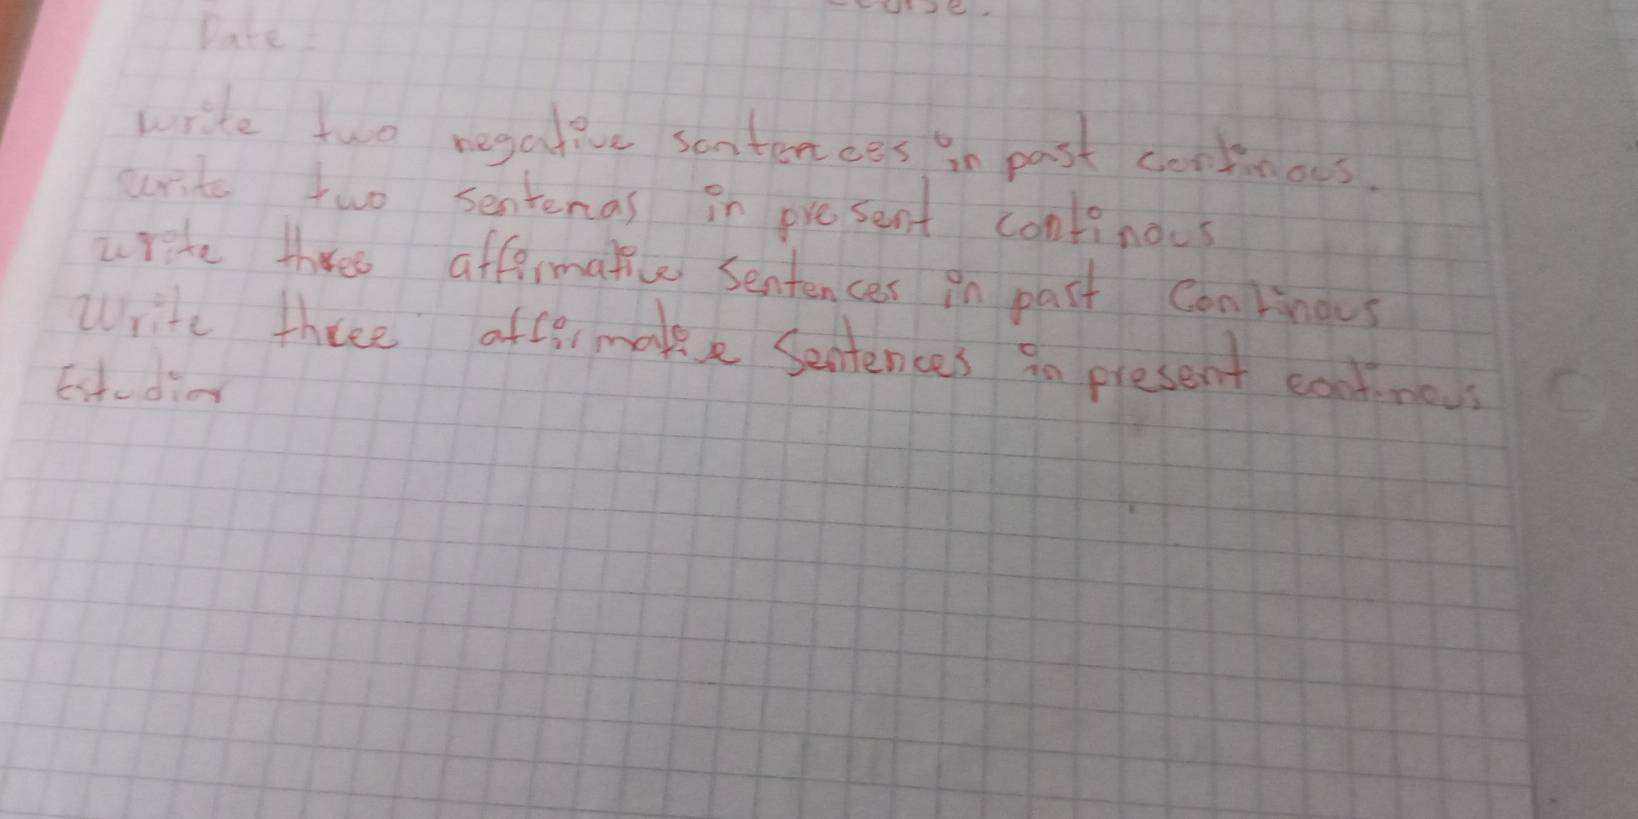 Date:
write two negative sontences in past continous.
write two sentenas in present continous
write three affirmative sentences in past continous
write three affirmative sentences in present continous
Estudiar